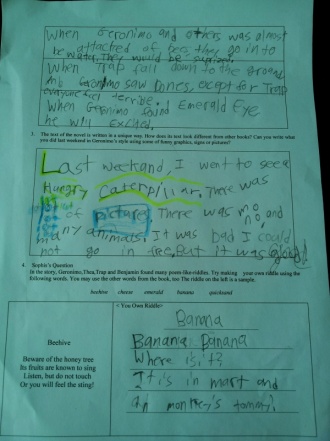 When Geronimo and others was almost
attacked of bees, they go into
the water. They would be suprized.
When Trap fall down to the ground
and Geronimo saw bones, except for Trap
everyone feel terrible.
When Geronimo found Emerald Eye
he will excited.
3. The text of the novel is written in a unique way. How does its text look different from other books? Can you write what
did you last weekend in Geronimo's style using some of funny graphics, signs or pictures?
Last weekend, I went to see a
Hungry Caterpillar. There was
lots of pictures. There was no, no, and
many animals. It was bad I could
not go in free, but it was good!
4. Sophie's Question
In the story, Geronimo, Thea, Trap and Benjamin found many poem-like-riddles. Try making your own riddle using the
following words. You may use the other words from the book, too. The riddle on the left is a sample.
beehive cheese emerald banana quicksand
Beehive
Beware of the honey tree
Its fruits are known to sing
Listen, but do not touch
Or you will feel the sting!
< You Own Riddle>
Banana
Banana Banana
Where is it?
It is in mart and
in monkey's tommy.